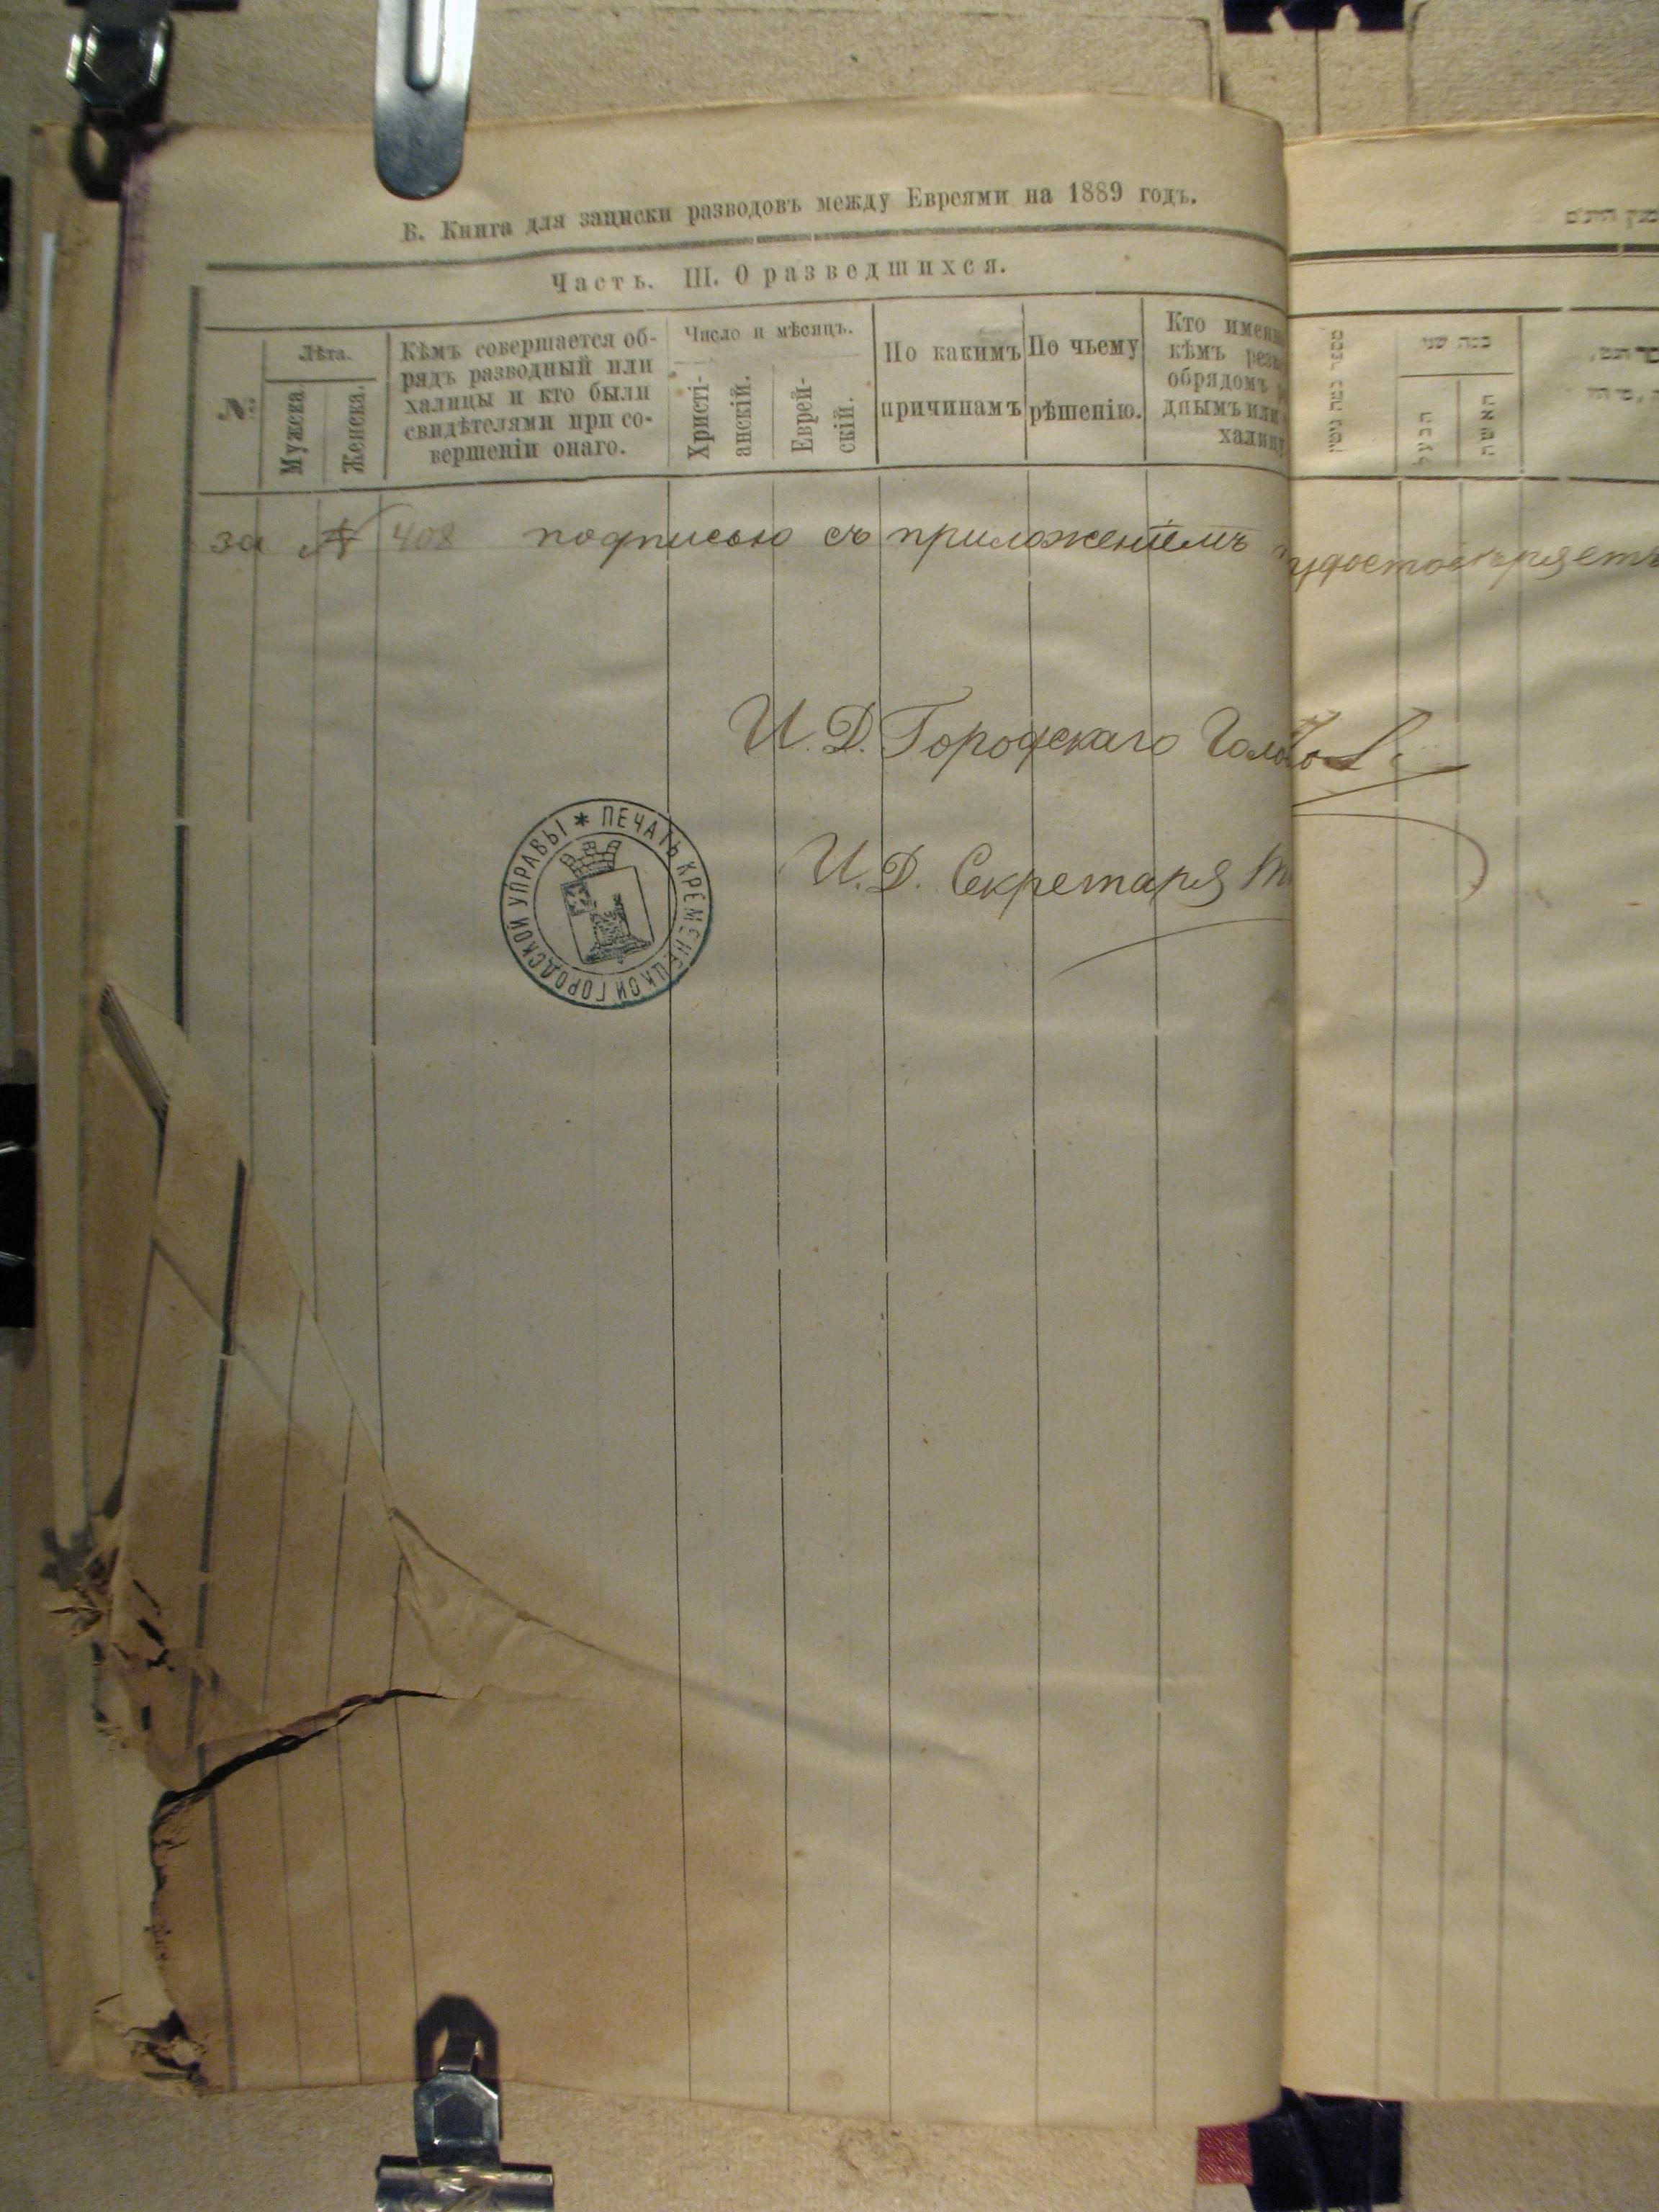 В. Книга для записки разводовъ между Евреями на 1889 годъ.
Часть. III. О разведшихся.
№
Лѣта.
Мужска
Женска.
Кѣмъ совершается об-
рядъ разводный или
халицы и кто были
свидѣтелями при со-
вершеніи онаго.
Число и мѣсяцъ.
Христі-
анскій.
Еврей-
скій.
По какимъ
причинамъ
По чьему
рѣшенію.
Кто имен
кѣмъ
обрядомъ
днымъ или
халиц
כמה שני
הבעל
האשה
за № 408 подписью съ приложеніемъ удостовѣряетъ
И. Д. Городскаго Головы
И. Д. Секретаря
* ПЕЧАТЬ КРЕМЕНЕЦКОЙ ГОРОДСКОЙ УПРАВЫ